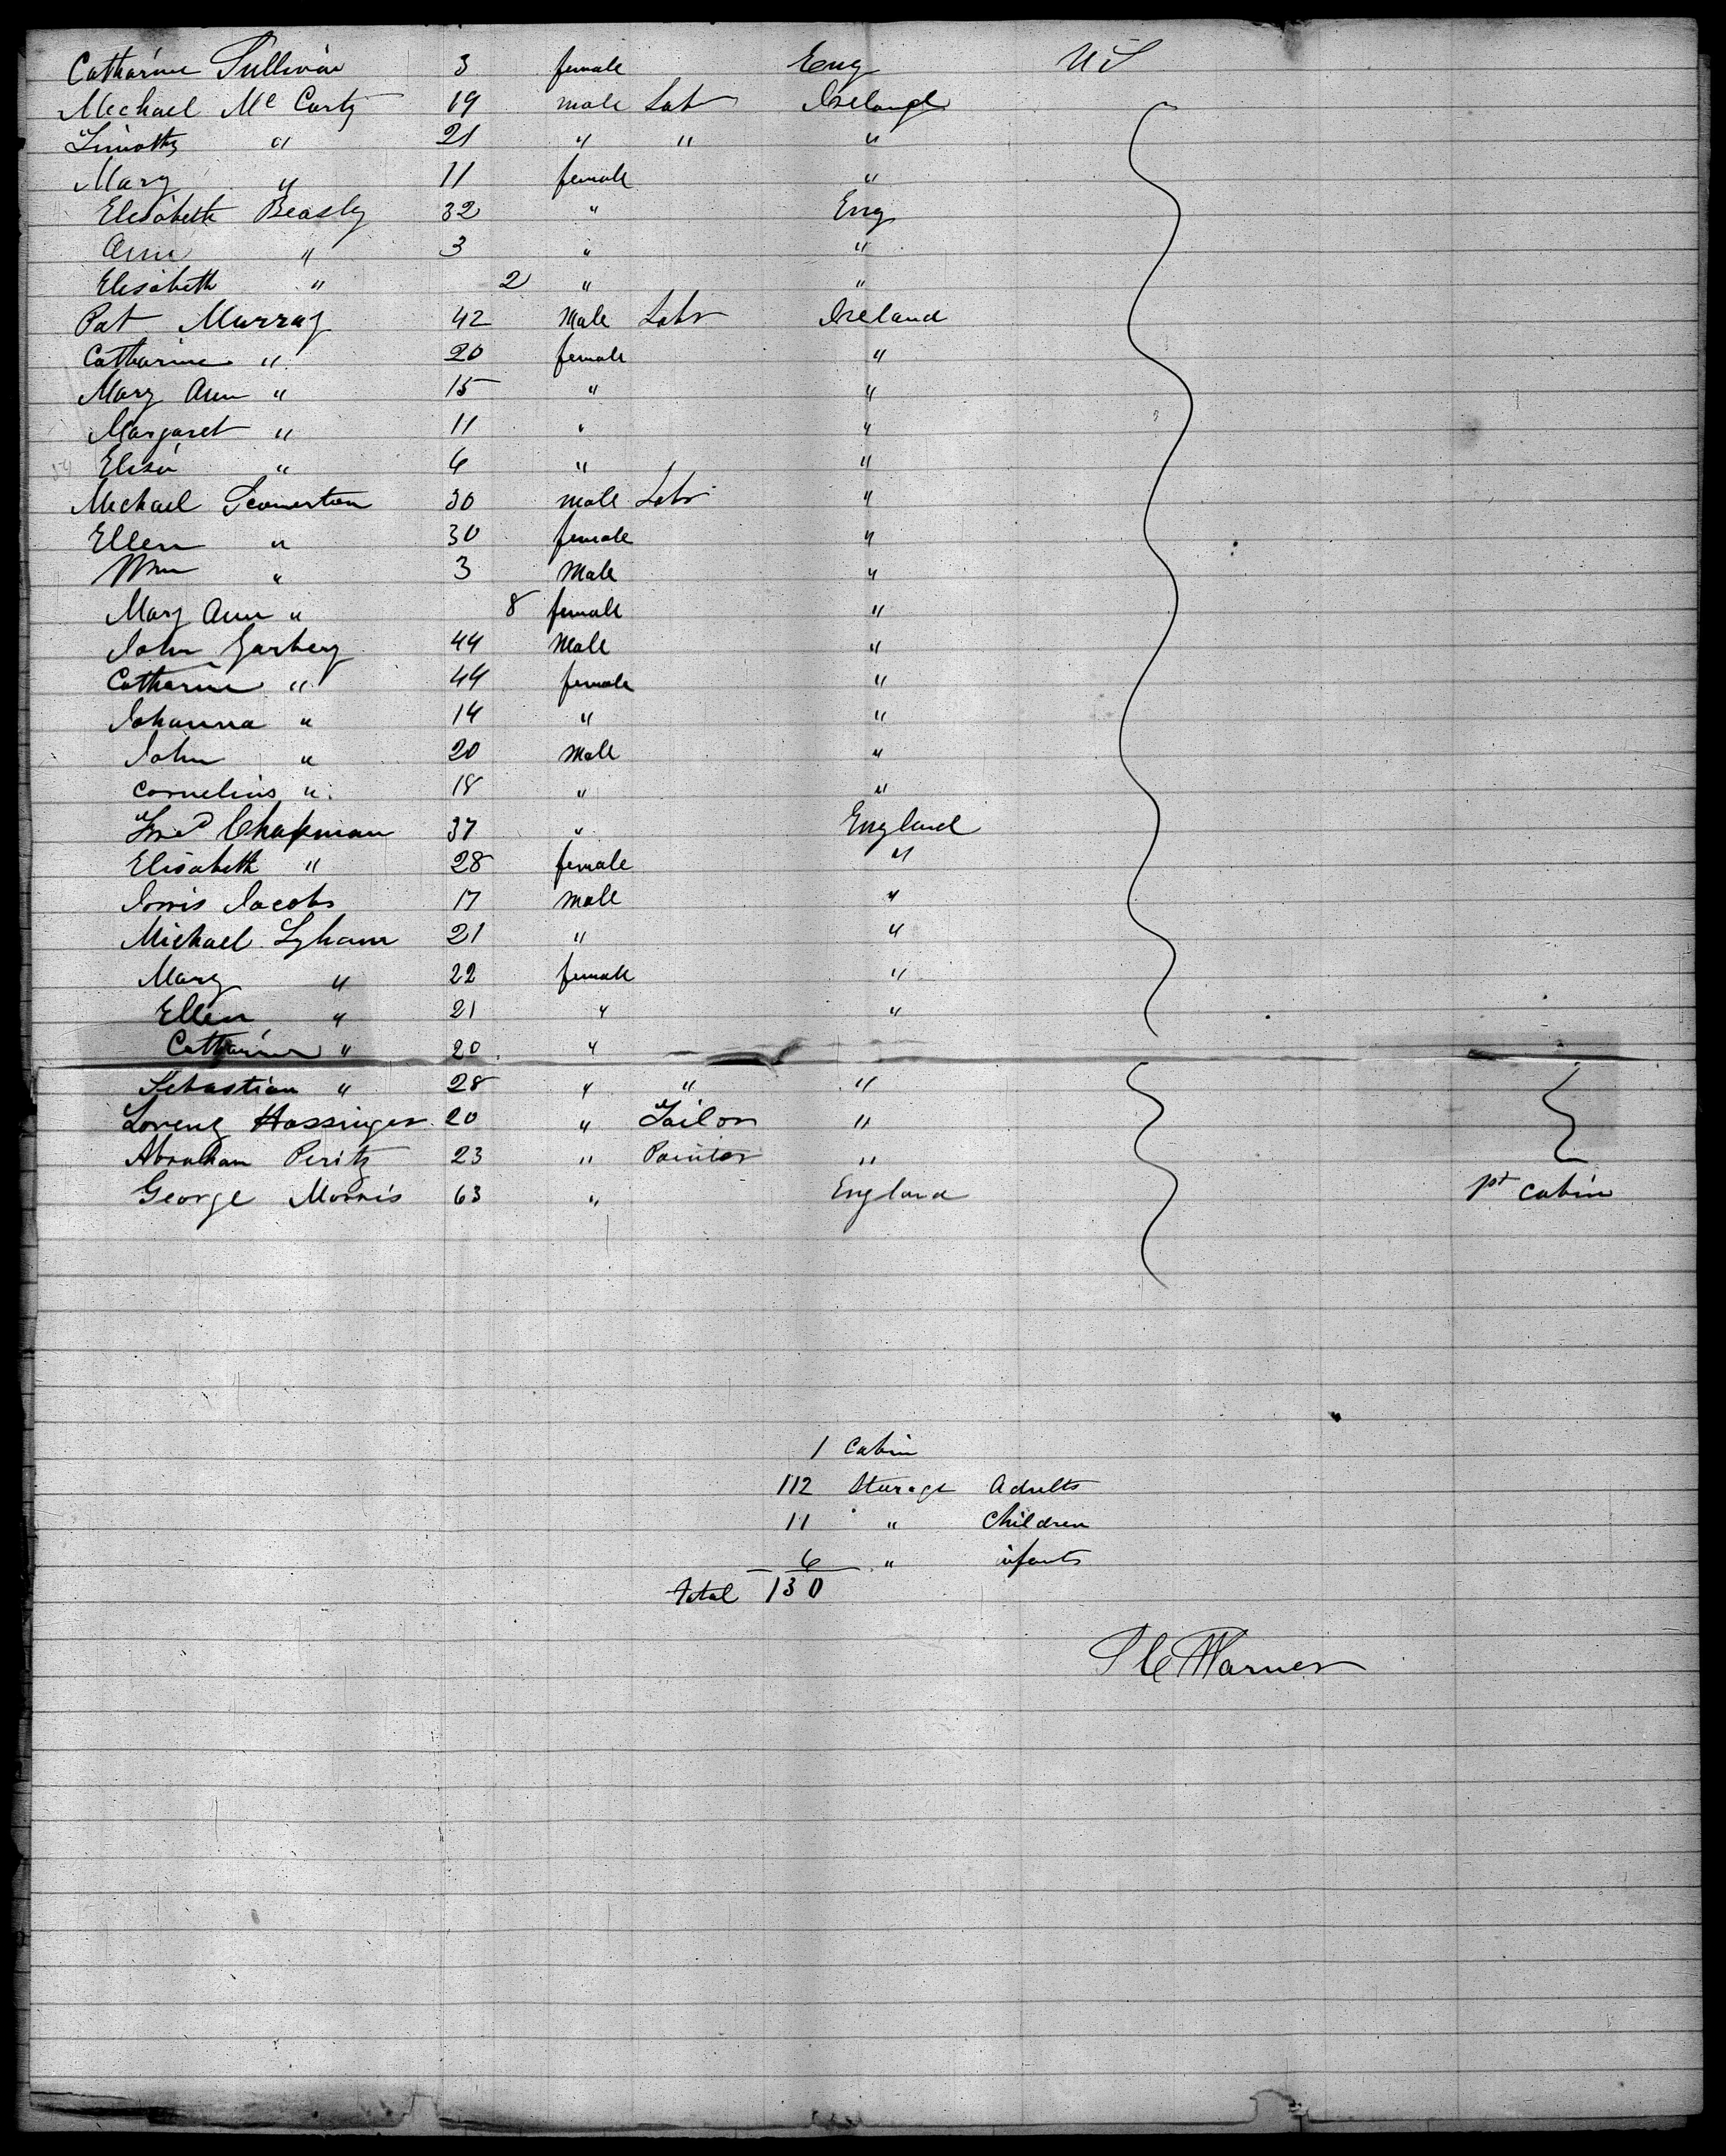 Catharine Sullivan 3 female Eng U S
Mechael Mc Carty 19 male Labr Ireland
Timothy " 21 " " "
Mary " 11 female "
Elisabeth Beasly 32 " Eng
Ann " 3 " "
Elisabeth " 2 " "
Pat Murray 42 Male Labr Ireland
Catharine " 20 female "
Mary Ann " 15 " "
Margaret " 11 " "
Elisa " 6 " "
Mechael 30 male Labr "
Ellen " 30 female "
Wm " 3 Male "
Mary Ann " 8 female "
John 44 Male "
Catharine " 44 female "
Johanna " 14 " "
John " 20 male "
Cornelius " 18 " "
Chapman 37 " England
Elisabeth " 28 female "
Jacobs 17 male "
Michael Lyham 21 " "
Mary " 22 female "
Ellen " 21 " "
Catharine " 20 "
Sebastian " 28 " " "
Lorenz Hassinger 20 " Tailor "
Abraham Peritz 23 " Painter "
George Morris 63 " England 1st cabin
1 Cabin
112 Sturage Adults
11 " Children
6 " infants
total 130
Warner